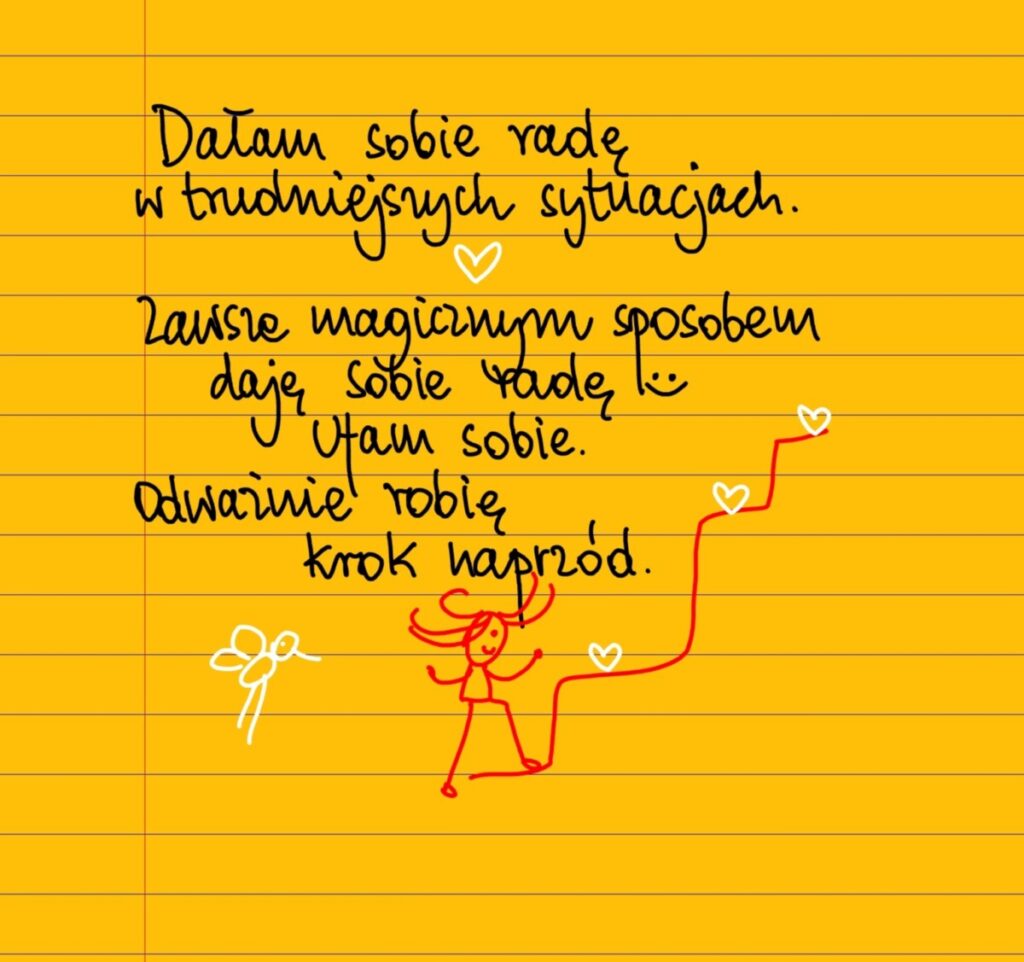 Dałam sobie radę
w trudniejszych sytuacjach.
Zawsze magicznym sposobem
daję sobie radę
Ufam sobie.
Odważnie robię
krok naprzód.